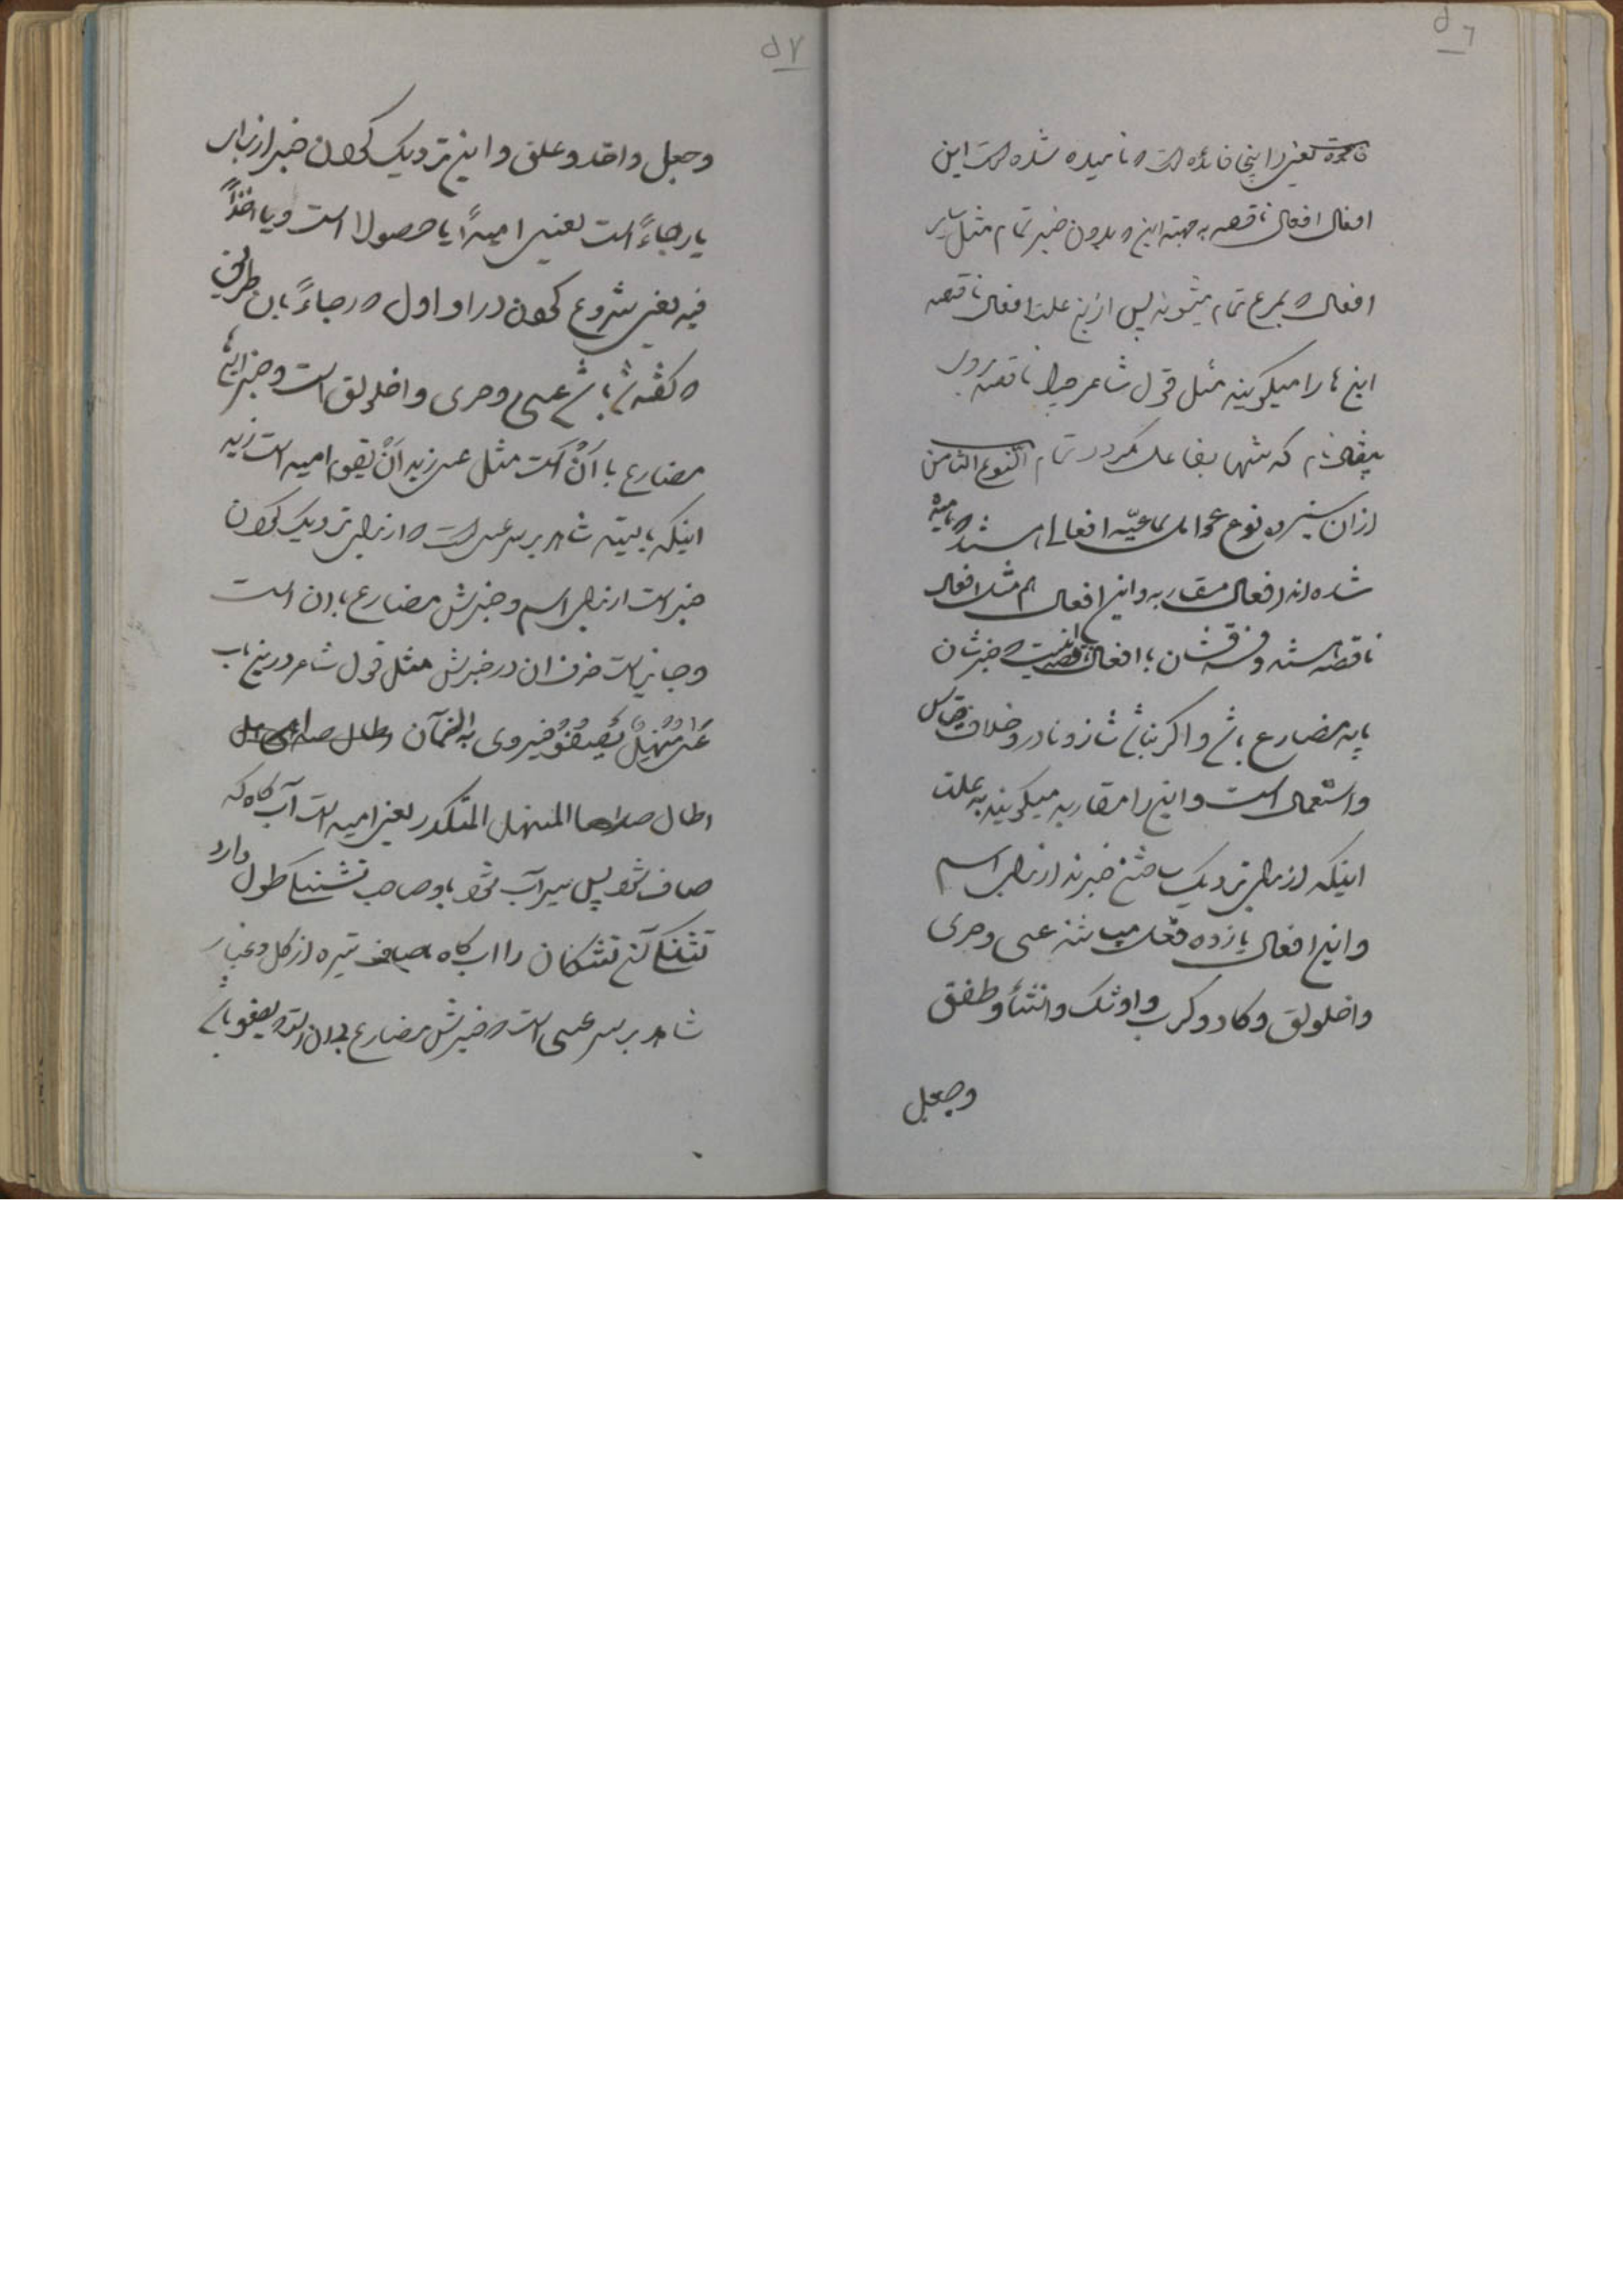 ٥٦
یعنی در اینجا فائده است و نامیده شده است این
افعال افعال ناقصه به جهته این که بدون خبر تمام مثل سایر
افعال که بمرفوع تمام میشوند پس از این علت افعال ناقصه
این ها را میگویند مثل قول شاعر چرا ناقصه
که تنها بفاعل نمیگردد تمام النوع الثامن
از آن سیزده نوع عوامل سماعیّه افعالی هستند که نامیده
شده اند افعال مقاربه و این افعال هم مثل افعال
ناقصه هستند و فرقشان با افعال ناقصه اینست که خبرشان
باید مضارع باشد و اگر نباشد شاذ و نادر و خلاف قیاس
و استعمال است و این را مقاربه میگویند به علت
اینکه از برای نزدیک ساختن خبرند از برای اسم
و این افعال یازده فعل میباشند عسی و حری
و اخلولق و کاد و کرب و اوشک و انشأ و طفق
وجعل
٥٧
وجعل و اخذ و علق و این نزدیک کردن خبر از برای
یا رجاءً است یعنی امیداً یا حصولا است و یا اخذاً
فیه یعنی شروع کردن در او اول که رجاءً بان طریق
که گفته شد عسی و حری و اخلولق است و خبر اینها
مضارع با اَنْ است مثل عسی زید اَنْ یقوم امید است زید
اینکه بایستد شاهد بر سر عسی است که از برای نزدیک کردن
خبر است از برای اسم و خبرش مضارع با ان است
و جایز است حذف ان در خبرش مثل قول شاعر در این باب
عَسٰی مَنْهَلٌ یَصْفُو فیروی به الظمآن
اطال صداها المنهل المتکدر یعنی امید است آب گاه که
صاف شود پس سیرآب شود باو صاحب تشنگی طول دارد
تشنگی آن تشنگان را اب گاه تیره از گل و غبار
شاهد بر سر عسی است که خبرش مضارع بدون ان که یصفو باشد